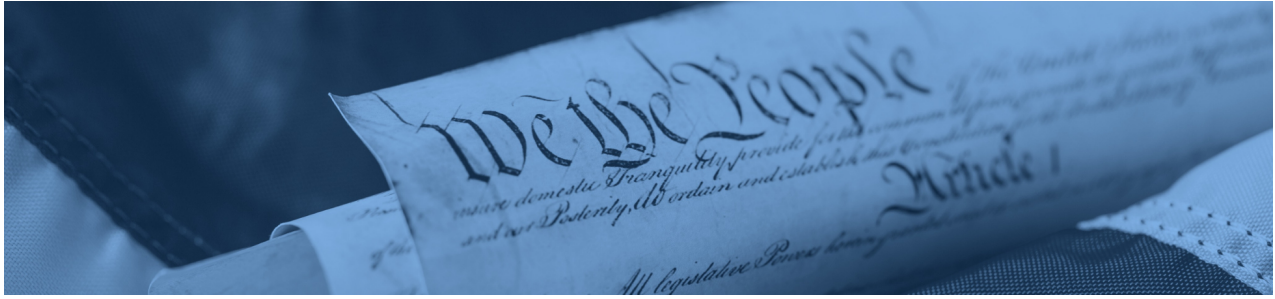 We the People of the United States
insure domestic Tranquility, provide for the common
and our Posterity, do ordain and establish this Constitution for the
Article I
of the
All legislative Powers herein granted